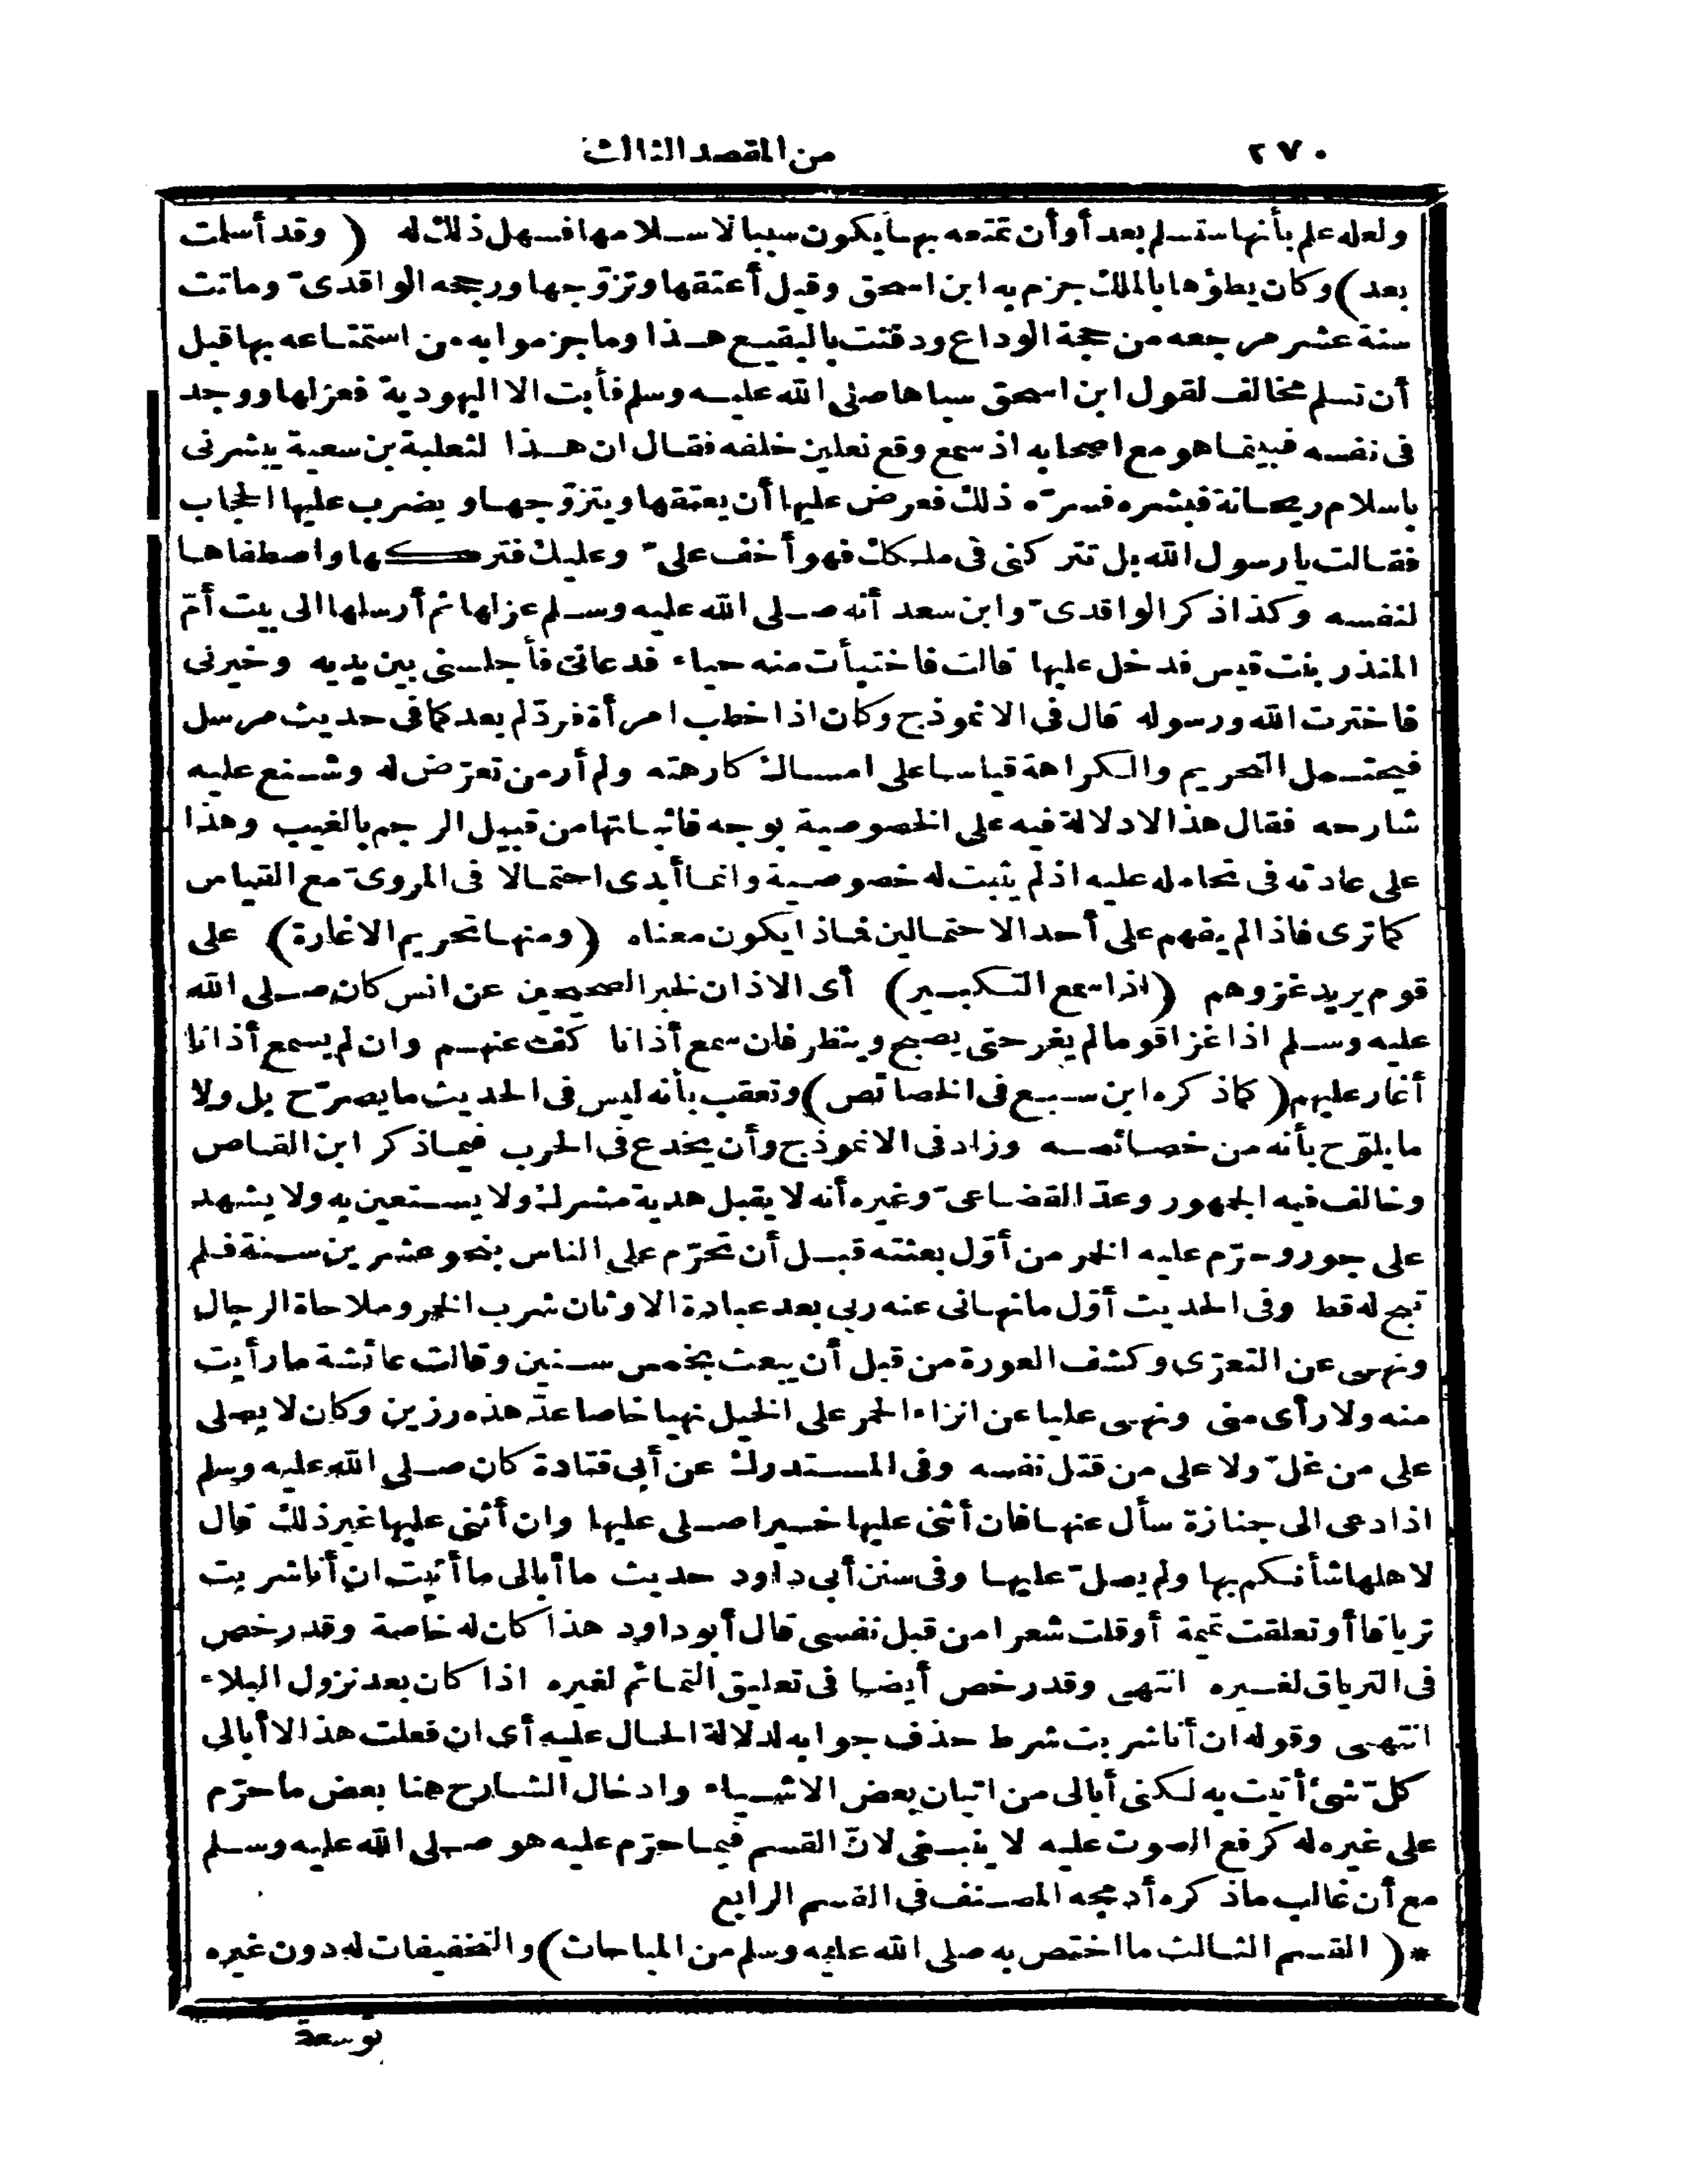 ٢٧٠
من المقصد الثالث
ولعله علم بأنها ستسلم بعد أو أن تمتعه بها يكون سببا لاسلامها فسهل ذلك له (وقد أسلمت
بعد) وكان يطؤها بالملك جزم به ابن اسحق وقيل أعتقها وتزوّجها ورجحه الواقدىّ وماتت
سنة عشر مرجعه من حجة الوداع ودفنت بالبقيع هذا وما جزموا به من استمتاعه بها قبل
أن تسلم مخالف لقول ابن اسحق سباها صلى الله عليه وسلم فأبت الا اليهودية فعزلها ووجد
فى نفسه فبينما هو مع اصحابه اذ سمع وقع نعلين خلفه فقال ان هذا لثعلبة بن سعية يبشرنى
باسلام ريحانة فبشره فسرّه ذلك فعرض عليها أن يعتقها ويتزوّجها ويضرب عليها الحجاب
فقالت يا رسول الله بل تتركنى فى ملكك فهو أخف علىّ وعليك فتركها واصطفاها
لنفسه وكذا ذكر الواقدىّ وابن سعد أنه صلى الله عليه وسلم عزلها ثم أرسلها الى بيت أمّ
المنذر بنت قيس فدخل عليها قالت فاختبأت منه حياء فدعانى فأجلسنى بين يديه وخيرنى
فاخترت الله ورسوله قال فى الانموذج وكان اذا خطب امرأة فردّ لم يعد كما فى حديث مرسل
فيحتمل التحريم والكراهة قياسا على امساك كارهته ولم أر من تعرّض له وشنع عليه
شارحه فقال هذا لا دلالة فيه على الخصوصية بوجه فاثباتها من قبيل الرجم بالغيب وهذا
على عادته فى تحامله عليه اذ لم يثبت له خصوصية وانما أبدى احتمالا فى المروىّ مع القياس
كما ترى فاذا لم يفهم على أحد الاحتمالين فماذا يكون معناه (ومنها تحريم الاغارة) على
قوم يريد غزوهم (اذا سمع التكبير) أى الاذان لخبر الصحيحين عن انس كان صلى الله
عليه وسلم اذا غزا قوما لم يغر حتى يصبح وينظر فان سمع أذانا كف عنهم وان لم يسمع أذانا
أغار عليهم (كما ذكره ابن سبع فى الخصائص) وتعقب بأنه ليس فى الحديث ما يصرّح بل ولا
ما يلوّح بأنه من خصائصه وزاد فى الانموذج وأن يخدع فى الحرب فيما ذكر ابن القاص
وخالف فيه الجمهور وعدّ القضاعىّ وغيره أنه لا يقبل هدية مشرك ولا يستعين به ولا يشهد
على جور وحرّم عليه الخمر من أوّل بعثته قبل أن تحرّم على الناس بنحو عشرين سنة فلم
تبح له قط وفى الحديث أوّل ما نهانى عنه ربى بعد عبادة الاوثان شرب الخمر وملاحاة الرجال
ونهى عن التعرّى وكشف العورة من قبل أن يبعث بخمس سنين وقالت عائشة ما رأيت
منه ولا رأى منى ونهى عليا عن انزاء الحمر على الخيل نهيا خاصا عدّ هذه رزين وكان لا يصلى
على من غلّ ولا على من قتل نفسه وفى المستدرك عن أبى قتادة كان صلى الله عليه وسلم
اذا دعى الى جنازة سأل عنها فان أثنى عليها خيرا صلى عليها وان أثنى عليها غير ذلك قال
لاهلها شأنكم بها ولم يصلّ عليها وفى سنن أبى داود حديث ما أبالى ما أتيت ان أنا شربت
ترياقا أو تعلقت تميمة أو قلت شعرا من قبل نفسى قال أبو داود هذا كان له خاصة وقد رخص
فى الترياق لغيره انتهى وقد رخص أيضا فى تعليق التمائم لغيره اذا كان بعد نزول البلاء
انتهى وقوله ان أنا شربت شرط حذف جوابه لدلالة الحال عليه أى ان فعلت هذا لا أبالى
كلّ شئ أتيت به لكنى أبالى من اتيان بعض الاشياء وادخال الشارح هنا بعض ما حرّم
على غيره له كرفع الصوت عليه لا ينبغى لانّ القسم فيما حرّم عليه هو صلى الله عليه وسلم
مع أن غالب ما ذكره أدمجه المصنف فى القسم الرابع
*(القسم الثالث ما اختص به صلى الله عليه وسلم من المباحات) والتخفيفات له دون غيره
توسعة